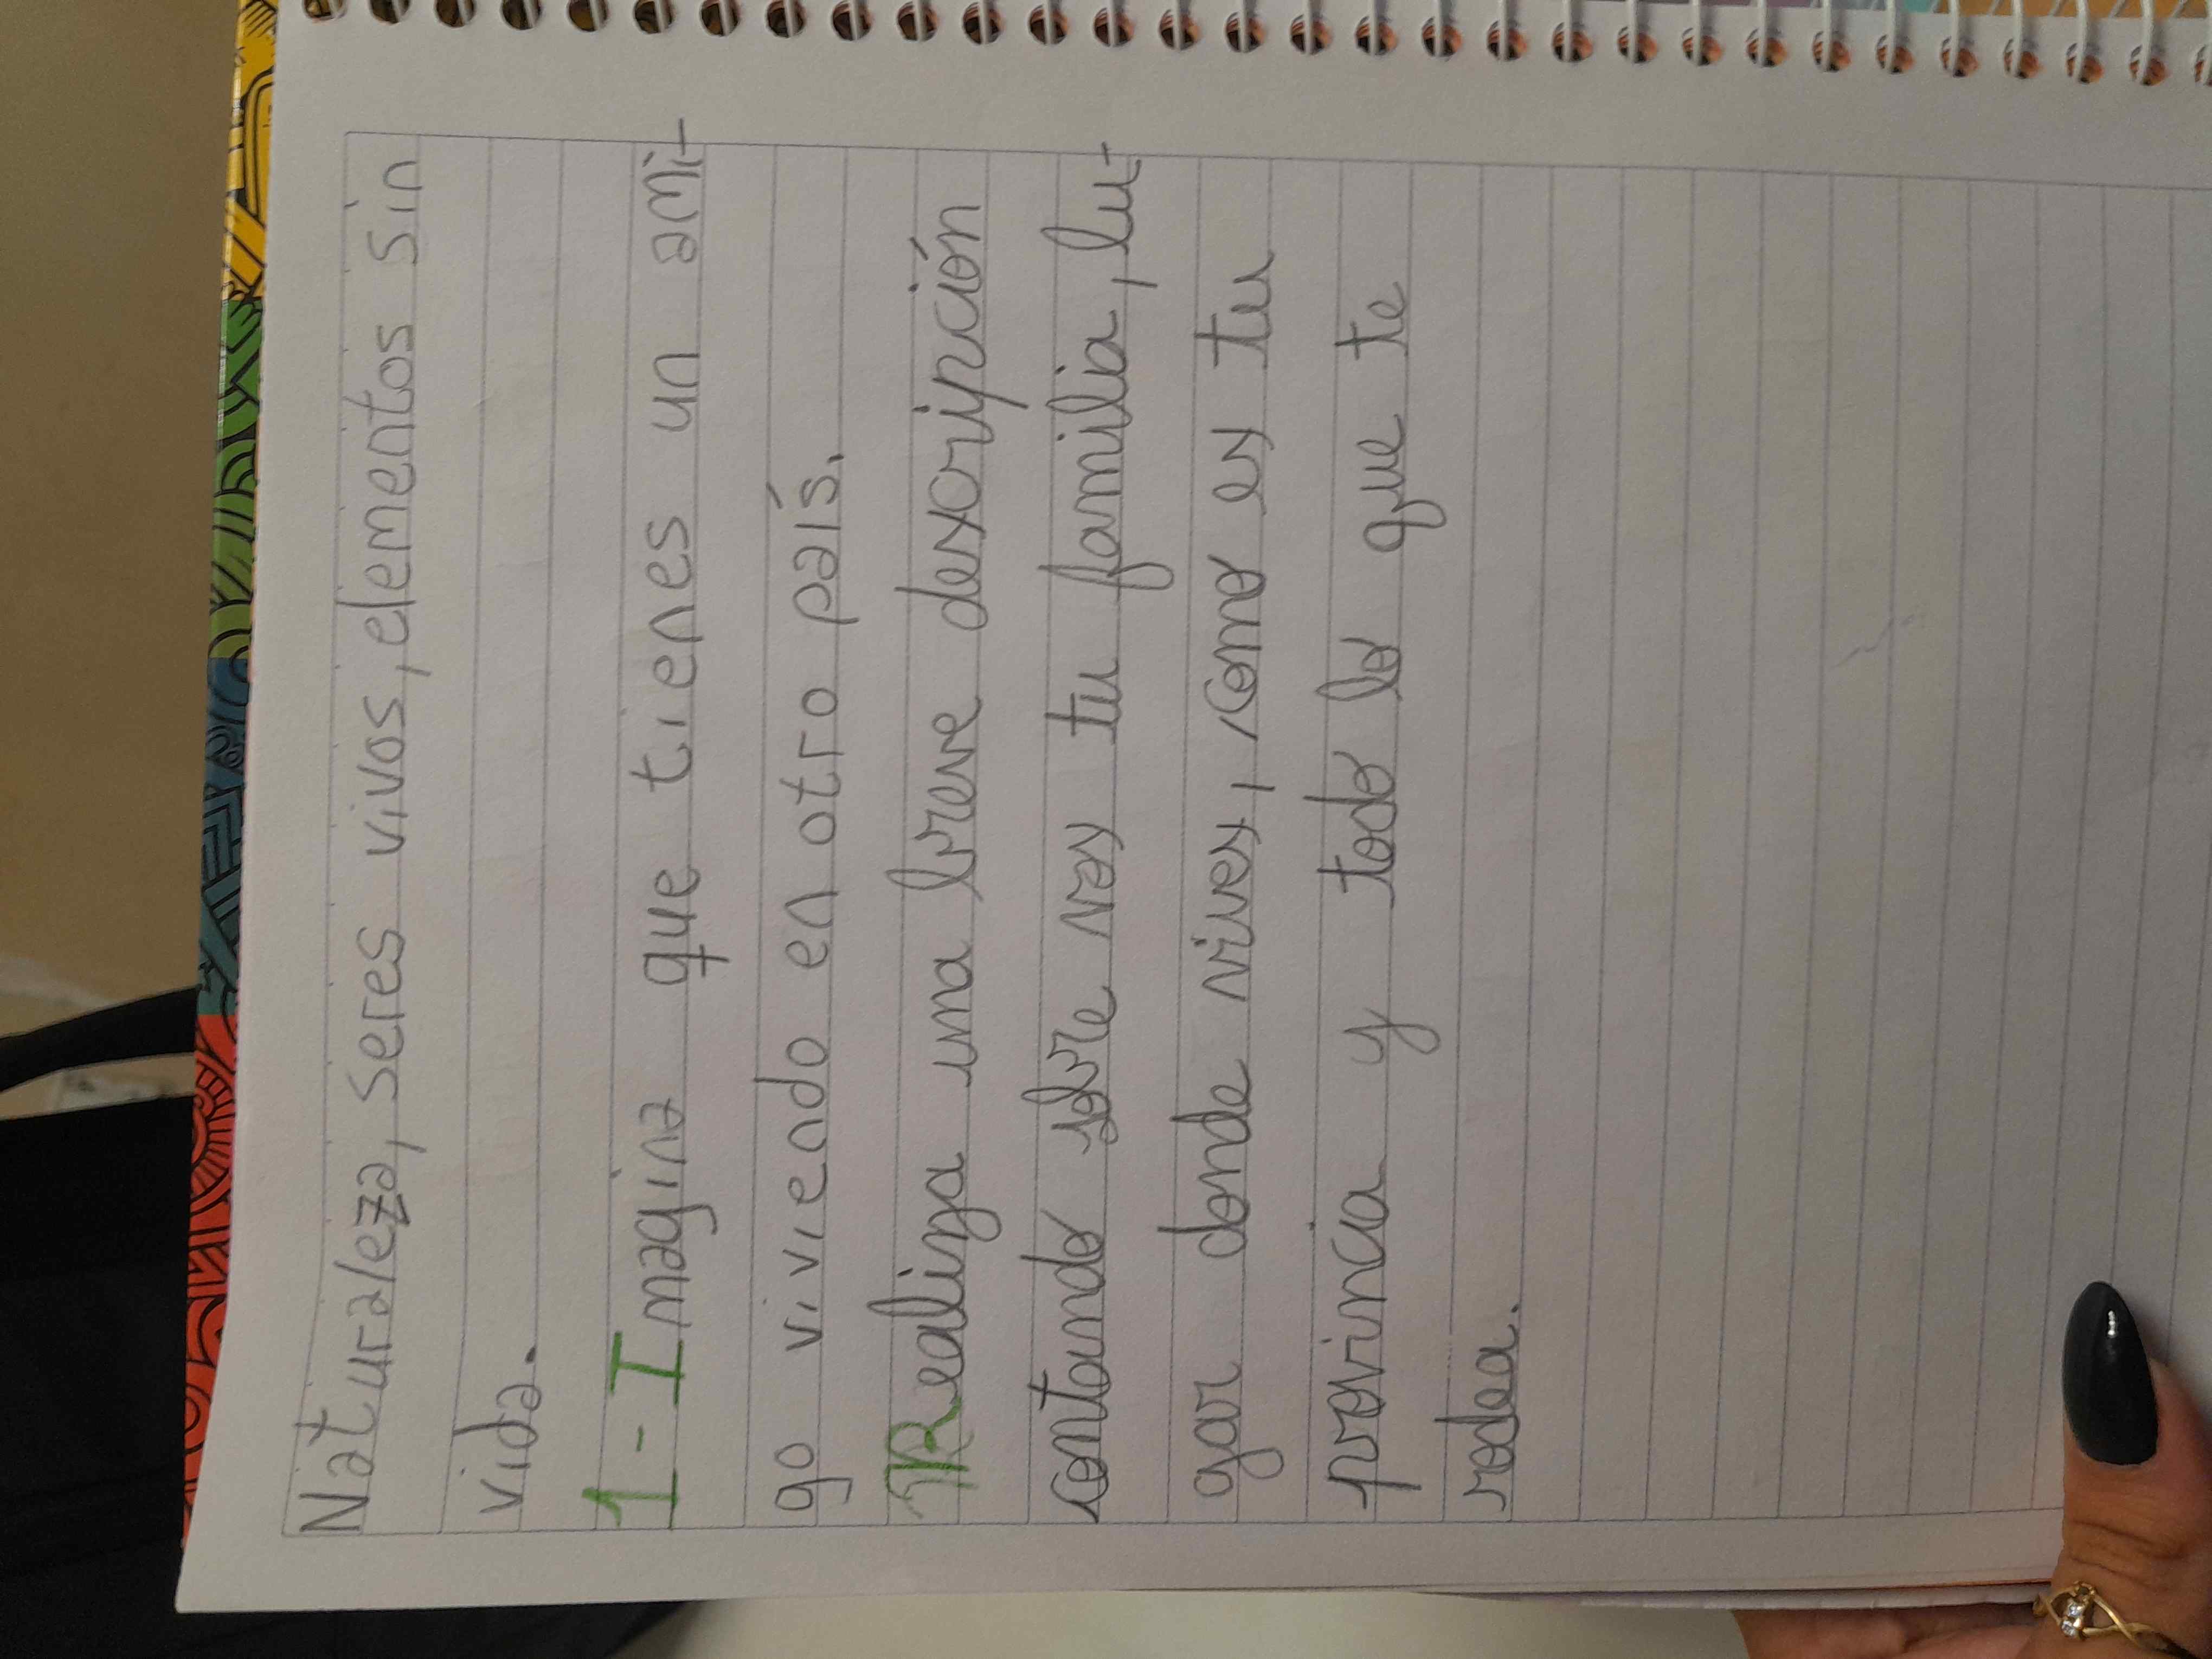 Naturaleza, seres vivos, elementos sin
vida.
1-Imagina que tienes un ami-
go viviendo en otro país.
Realiza una breve descripción
contando sobre vos tu familia, lu-
gar donde vives, como es tu
provincia y todo lo que te
rodea.